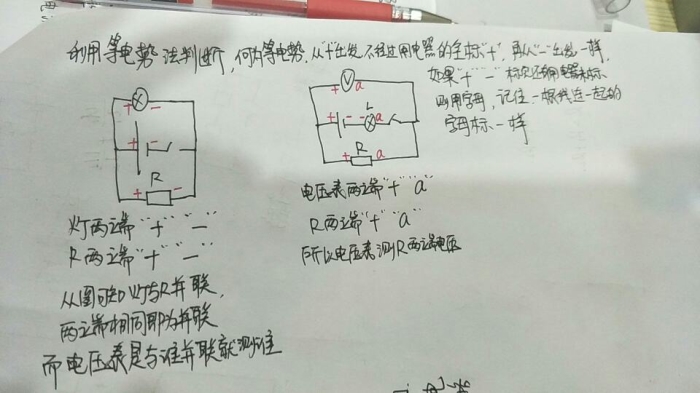 利用等电势法判断,何为等电势,从"+"出发不经过用电器的全标"+",再从"-"出发一样,
如果"+""-"标完还有用电器未标
则用字母,记住一根线连一起的
字母标一样
+ -
+ -
R
+ -
V
+ a
L
+ - - a
R
+ a
灯两端"+""-"
R两端"+""-"
从图可知灯与R并联,
两端相同即为并联
而电压表是与谁并联就测谁
电压表两端"+""a"
R两端"+""a"
所以电压表测R两端电压